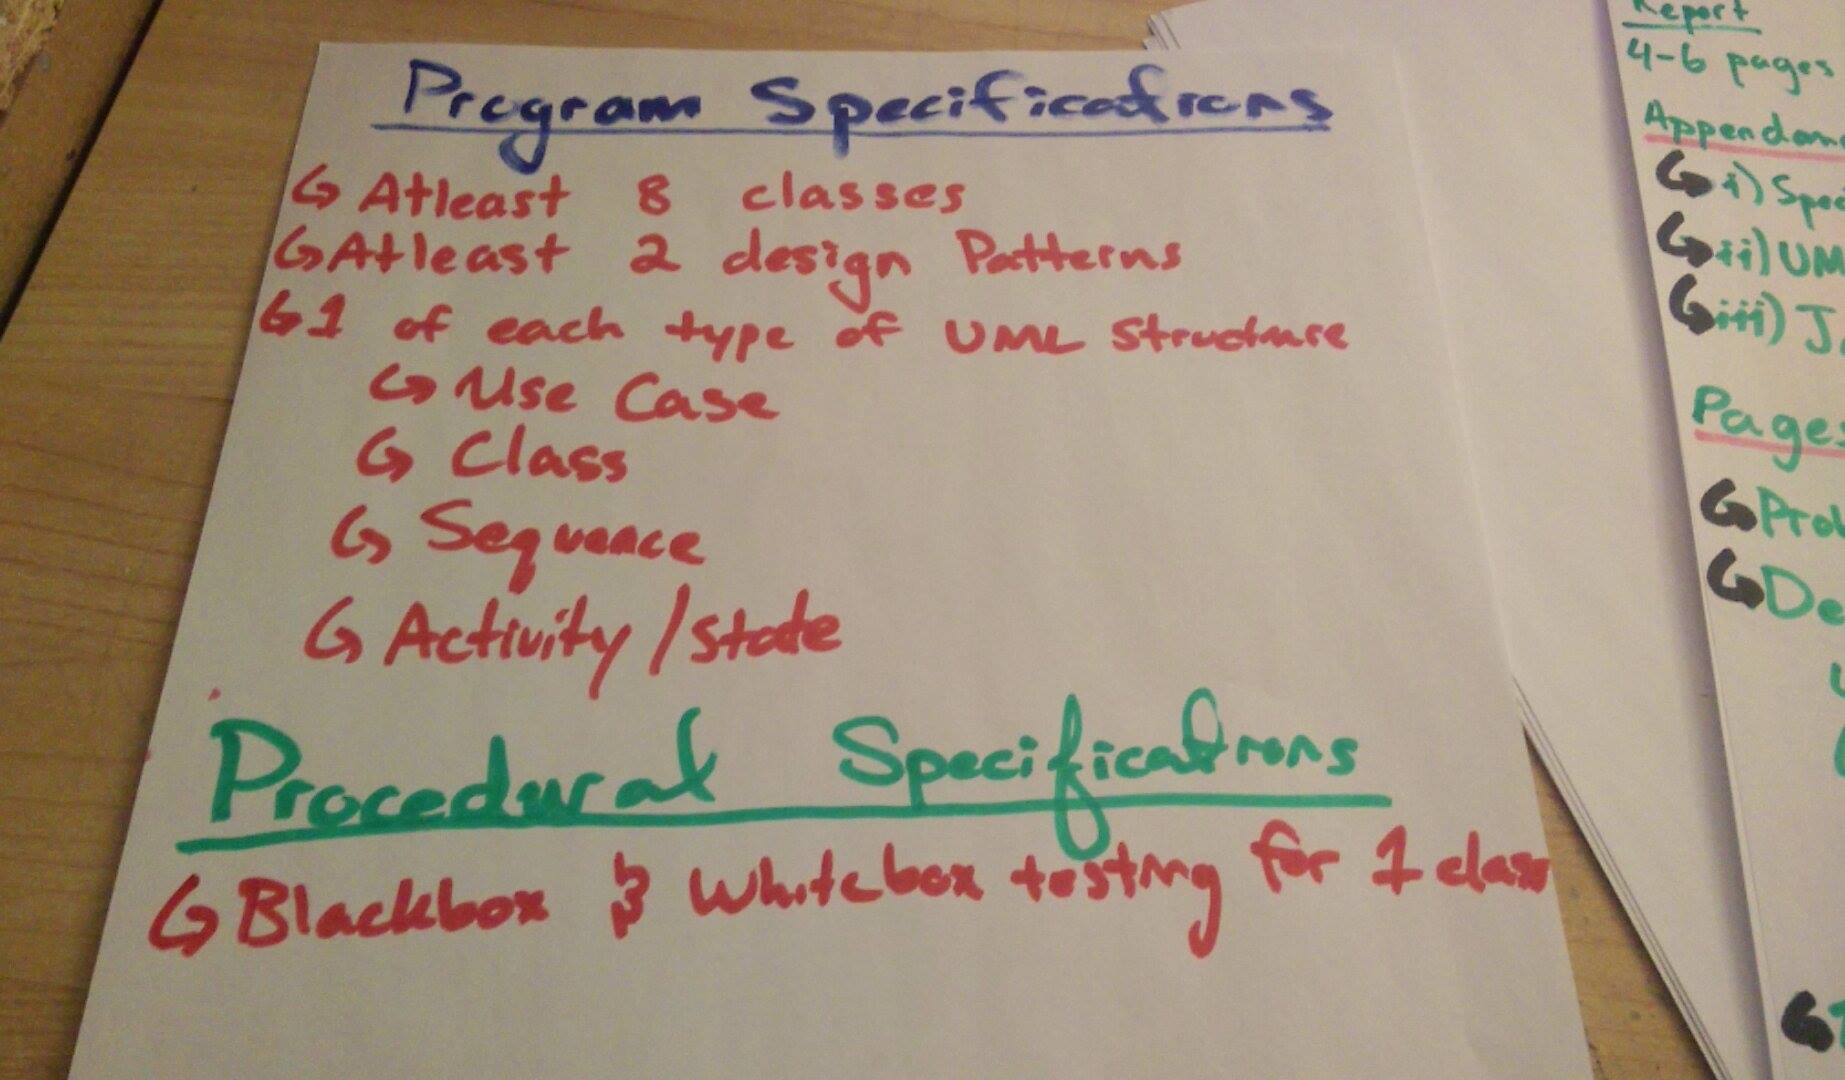 Program Specifications
Atleast 8 classes
Atleast 2 design Patterns
1 of each type of UML Structure
Use Case
Class
Sequence
Activity/state
Procedural Specifications
Blackbox & Whitebox testing for 1 class
Report
4-6 pages
i)
ii)
iii)